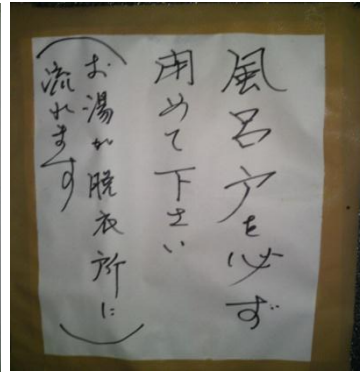 風呂戸を必ず
閉めて下さい
(お湯が脱衣所に
流れます)